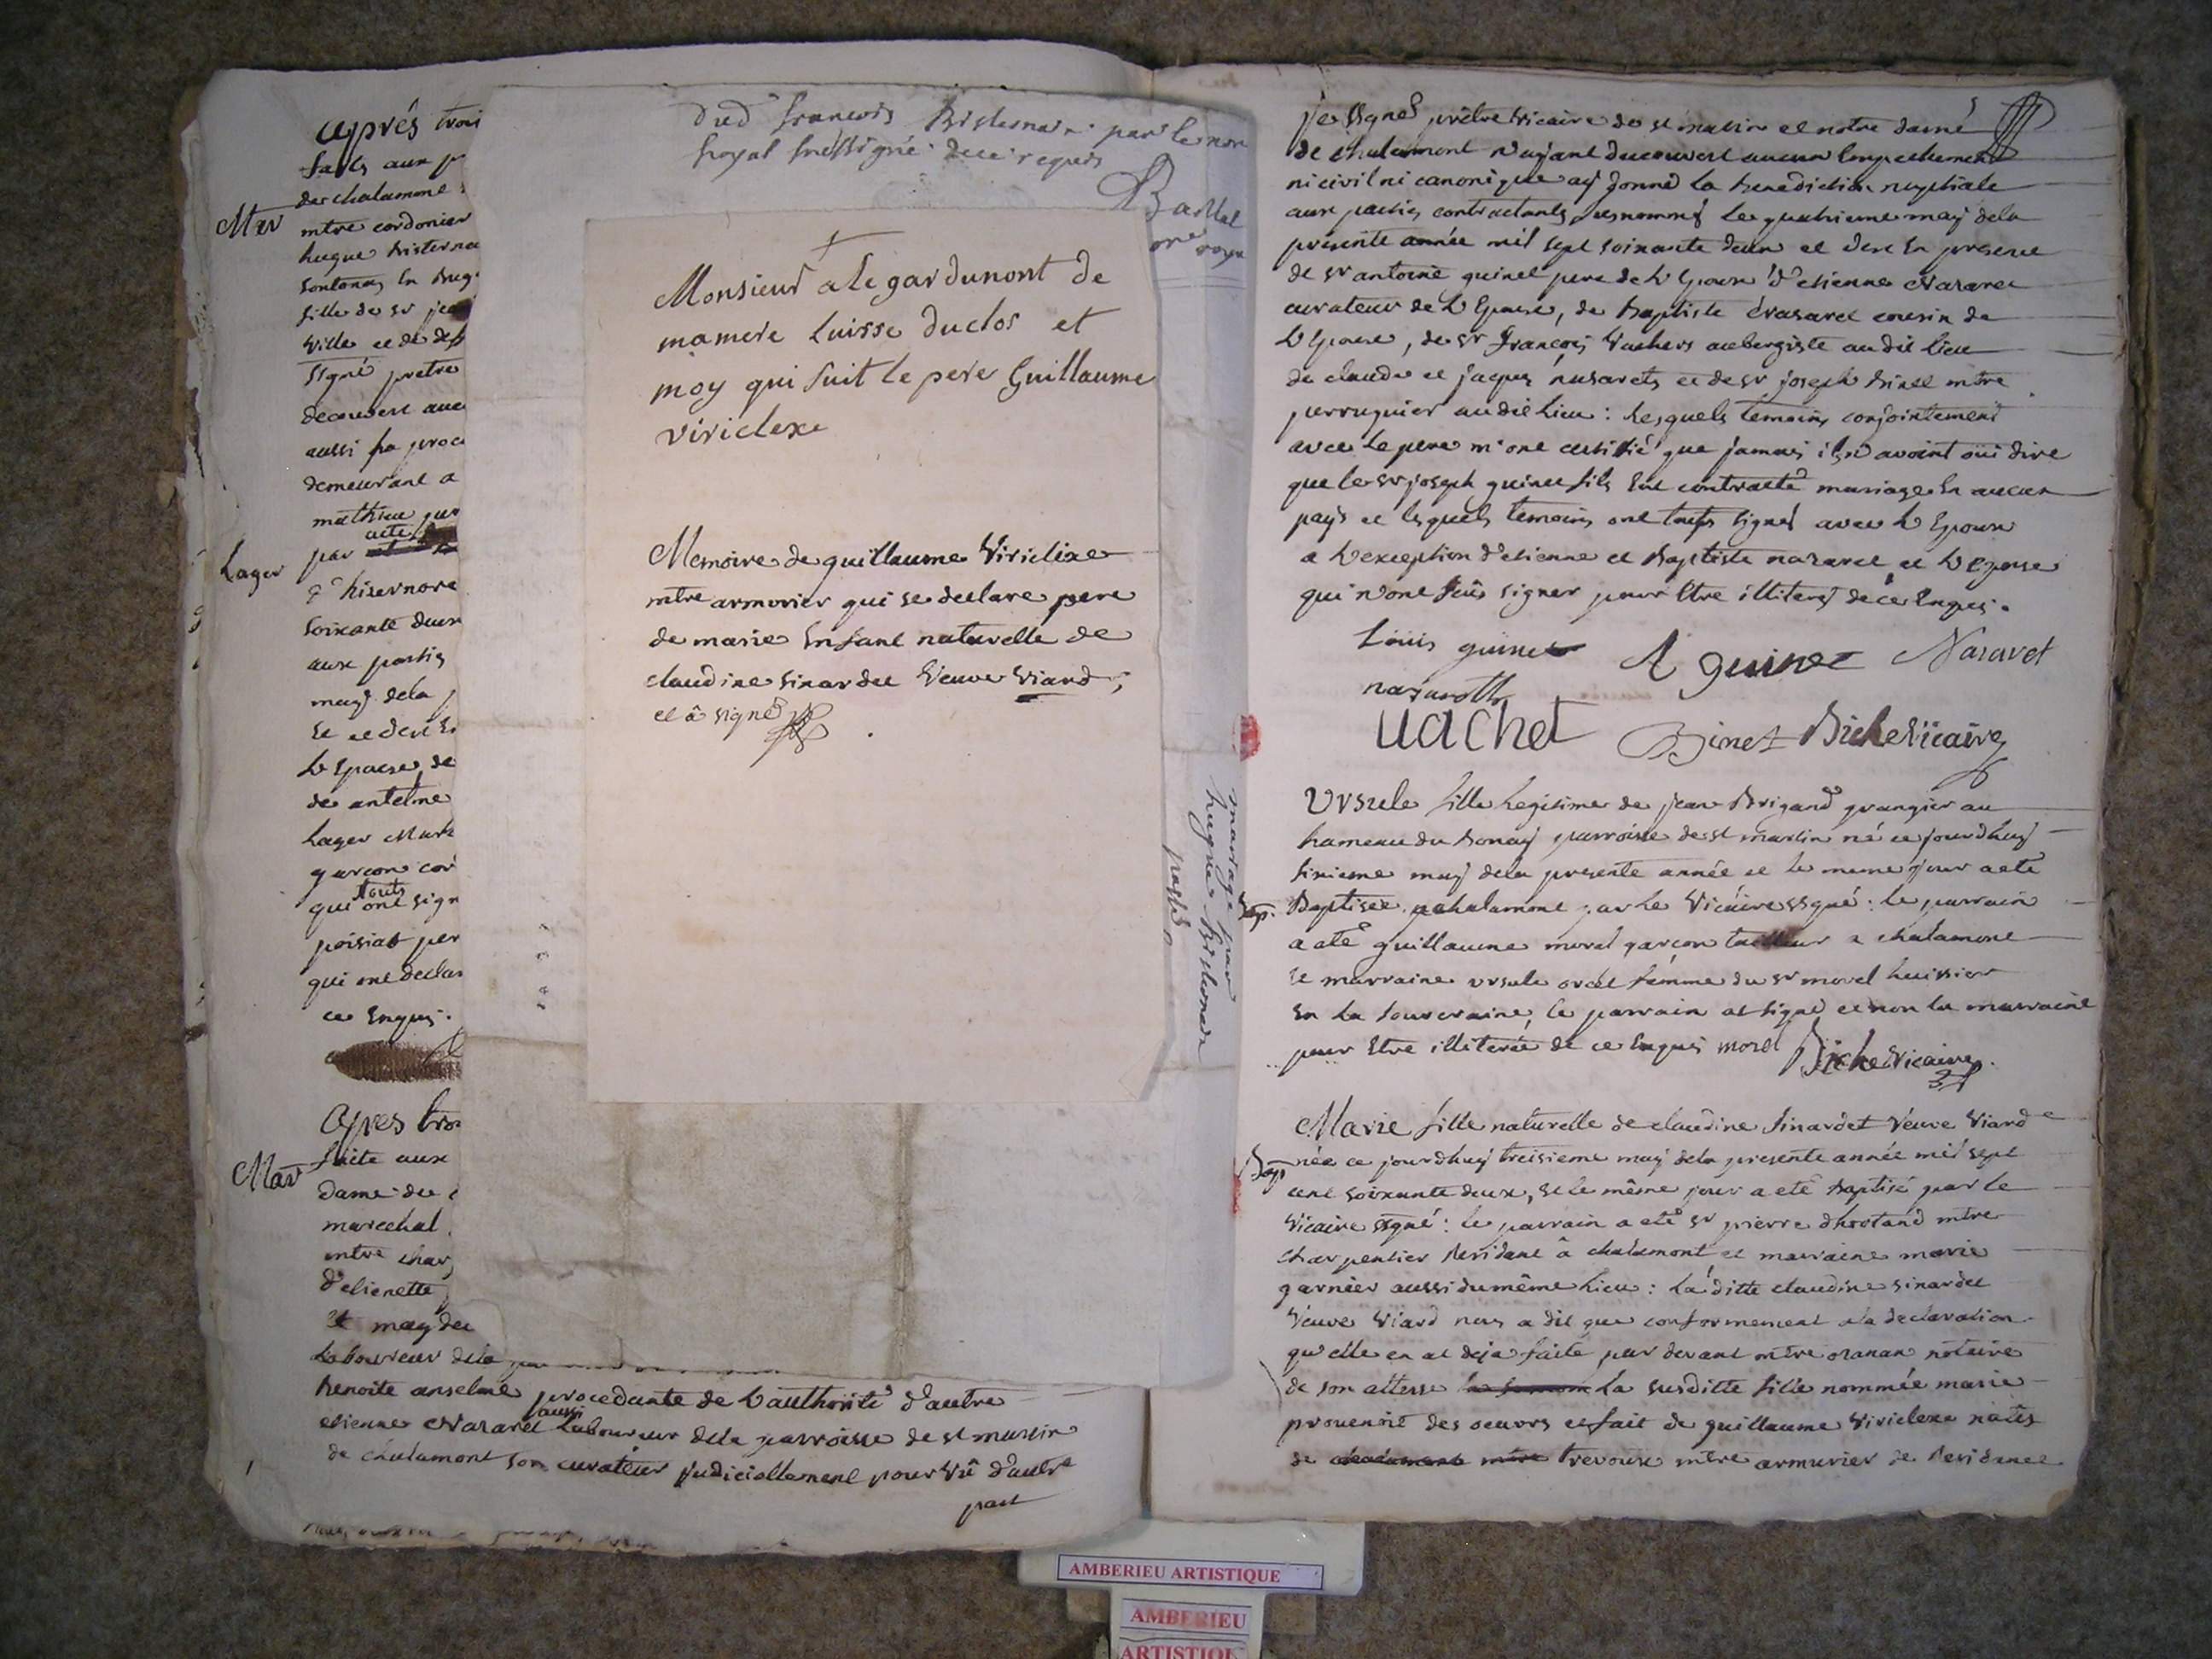 après trois
faits aux p
de chalamont
Mar
mtre cordonier
hugue bisterna
fille de sr jea
ville et de def
signé pretre
decouvert auc
aussi sa proc
demeurant a
mathieu
Lager
par acte
d'hisernore
soixante deux
aux partis
may dela p
L'epouse, de
de antelme
Lager Mark
garçon cor
qui touts ont sign
poisiat per
qui me declar
ce enquis.
Apres troi
Mar
faite aux
dame de c
marechal
mtre char
d'elienette
may de
Laboureur dela
benoite anselme procedante de l'authorité d'autre
etienne Nazaret aussi Laboureur dela parroisse de st martin
de chalamont son curateur judiciellement pour vû d'autre
part
dud françois Bisterna par le no
royal soussigné de ce requis
Monsieur a le gardunont de
mamere luisse duclos et
moy qui suit le pere Guillaume
viriclexe
Memoire de guillaume Viriclixe
mtre armorier qui se declare pere
de marie enfant naturelle de
claudine sinardet Veuve Viard,
et â signé
mariage pour
hugue Bisterna
je ssigné prêtre vicaire de st martin et notre dame
de chalamont n'ayant decouvert aucun empechement
ni civil ni canonique ay donné la benediction nuptiale
aux partis contractants susnommés le quatrieme may dela
presente année mil sept soixante deux et deux en presence
de sr antoine guinet pere de l'epoux d'etienne Nazaret
curateur de l'epouse, de baptiste Nazaret cousin de
l'epouse, de sr françois Vachet aubergiste au dit lieu
de claude et jaques nazarets et de sr joseph binet mtre
perruquier au dit lieu : lesquels temoins conjointement
avec le pere m'ont certifié que jamais ils n'avoint oüi dire
que le sr joseph guinet fils eut contracté mariage en aucun
pays et lesquels temoins ont touts signés avec l'epoux
a l'exception d'etienne et baptiste nazaret et l'epouse
qui n'ont sçûs signer pour etre illiterés de ce enquis.
Loüis guinet A guinet Nazaret
nazaroth
uachet Binet Biche vicaire
Ursule fille legitime de jean Brigand grangier au
hameau du bonay parroisse de st martin né ce jourdhuy
sixieme may dela presente année et le meme jour a eté
Bap. Baptisée a chalamont par le Vicaire ssgné : le parrain
a eté guillaume morel garçon tailleur a chalamont
et marraine ursule orcel femme du sr morel huissier
en la souveraine, le parrain at signé et non la marraine
pour etre illiterée de ce enquis morel Biche vicaire
Marie fille naturelle de claudine sinardet Veuve Viard
Bap née ce jourdhuy treisieme may dela presente année mil sept
cent soixante deux, et le même jour a eté baptisé par le
Vicaire ssgné : le parrain a eté sr pierre dhostand mtre
charpentier residant â chalamont et marraine marie
garnier aussi du même lieu : la ditte claudine sinardet
Veuve Viard nous a dit que conformement a la declaration
qu'elle en at deja faite par devant mtre oranan notaire
de son altesse la susditte fille nommée marie
provenoit des oeuvrs et fait de guillaume Viriclexe natif
de trevoux mtre armurier de residance
AMBERIEU ARTISTIQUE
AMBERIEU
ARTISTIQUE